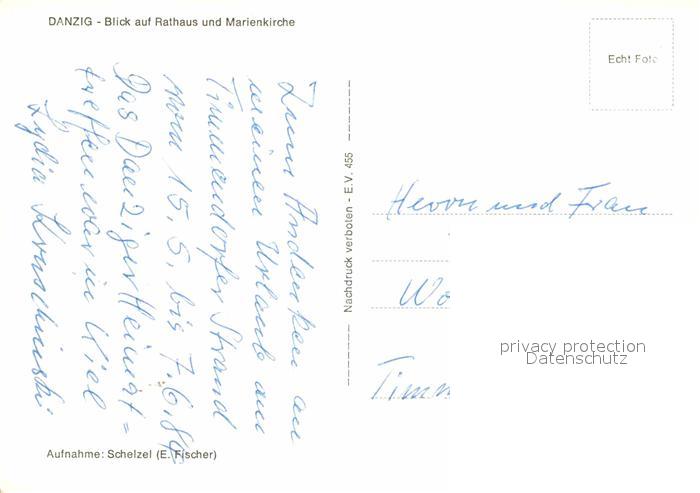 DANZIG - Blick auf Rathaus und Marienkirche
Zum Andenken an
meinen Urlaub am
Timmendorfer Strand
vom 15. 5. bis 7. 6. 84
Das Danziger Heimat=
treffen war in Kiel
Lydia
Aufnahme: Schelzel (E. Fischer)
Nachdruck verboten - E.V. 455
Echt Foto
Herrn und Frau
Wo
Timm
privacy protection
Datenschutz